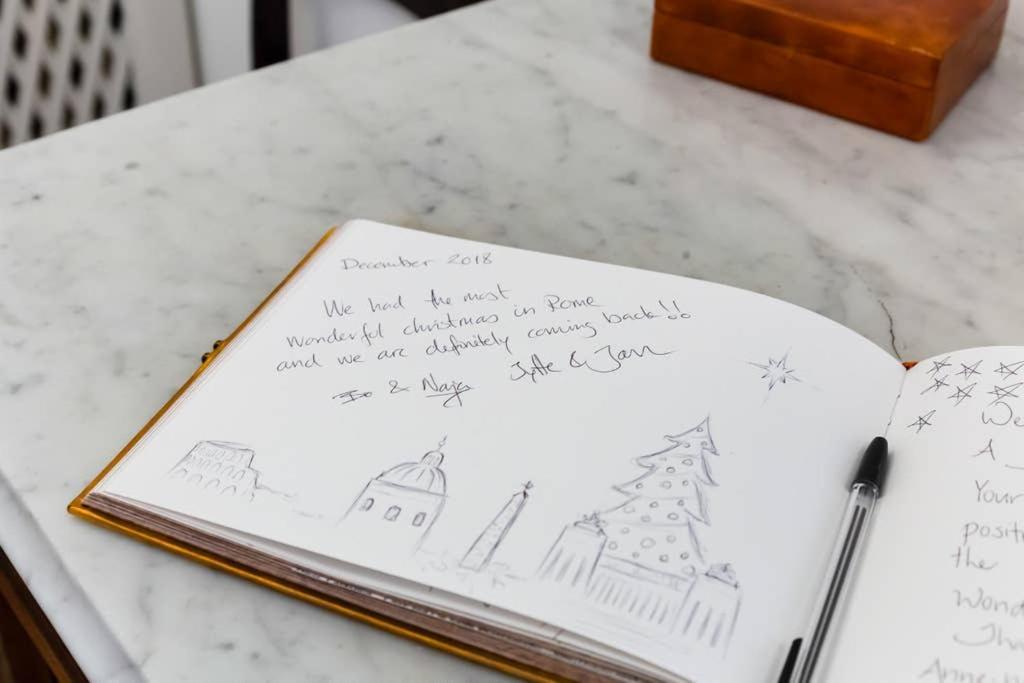 December 2018
We had the most
wonderful christmas in Rome
and we are definitely coming back!!
& Naja Jytte & Jann
We
A
Your
the
Anne